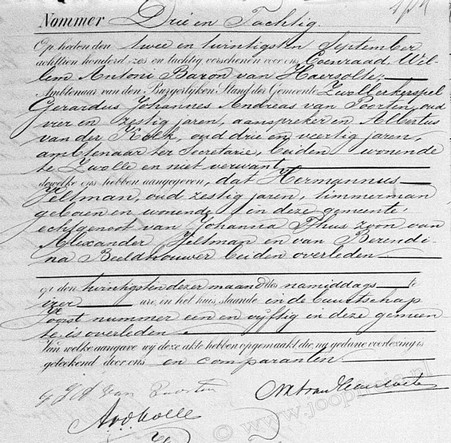 Nommer Drie en Tachtig
Op heden den twee en twintigsten September
achttien honderd zes en tachtig verschenen voor ons Coenraad Wil-
lem Antoni Baron van Haersolte,
Ambtenaar van den Burgerlijken Stand der Gemeente Zwollerkerspel
Gerardus Johannes Andreas van Poorten, oud
vier en zestig jaren, aanspreker en Albertus
van der Kolk, oud drie en veertig jaren,
ambtenaar ter Secretarie, beiden wonende
te Zwolle en niet verwant
dewelke ons hebben aangegeven, dat Hermannus
Jeltman, oud zestig jaren, timmerman
geboren en wonende in deze gemeente
echtgenoot van Johanna Thus zoon van
Alexander Jeltman en van Berendi-
na Beeldhouwer beiden overleden
op den twintigsten dezer maand des namiddags te
ure, in het huis, staande in de buurtschap
nummer een en vijftig in deze gemeen-
te is overleden
Van welke aangave wij deze akte hebben opgemaakt die, na gedane voorlezing is
geteekend door ons en comparanten.